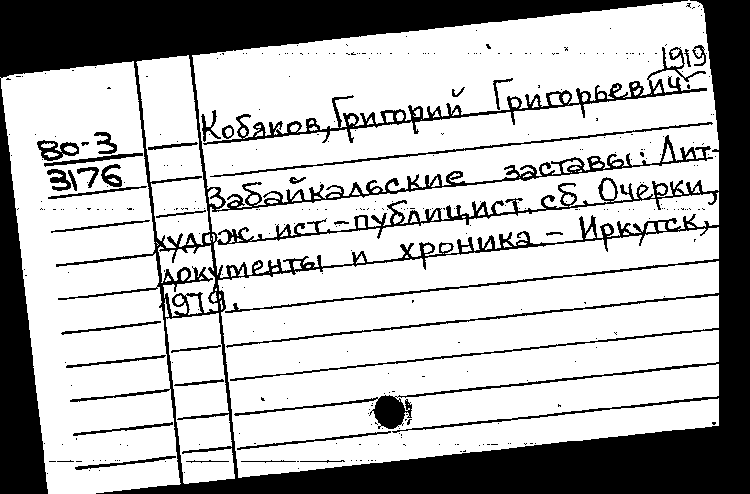 1919
Кобяков, Григорий Григорьевич.
80-3
3176
Забайкальские заставы: Лит-
худож. ист.-публицист. сб. Очерки,
документы и хроника. - Иркутск,
1979.